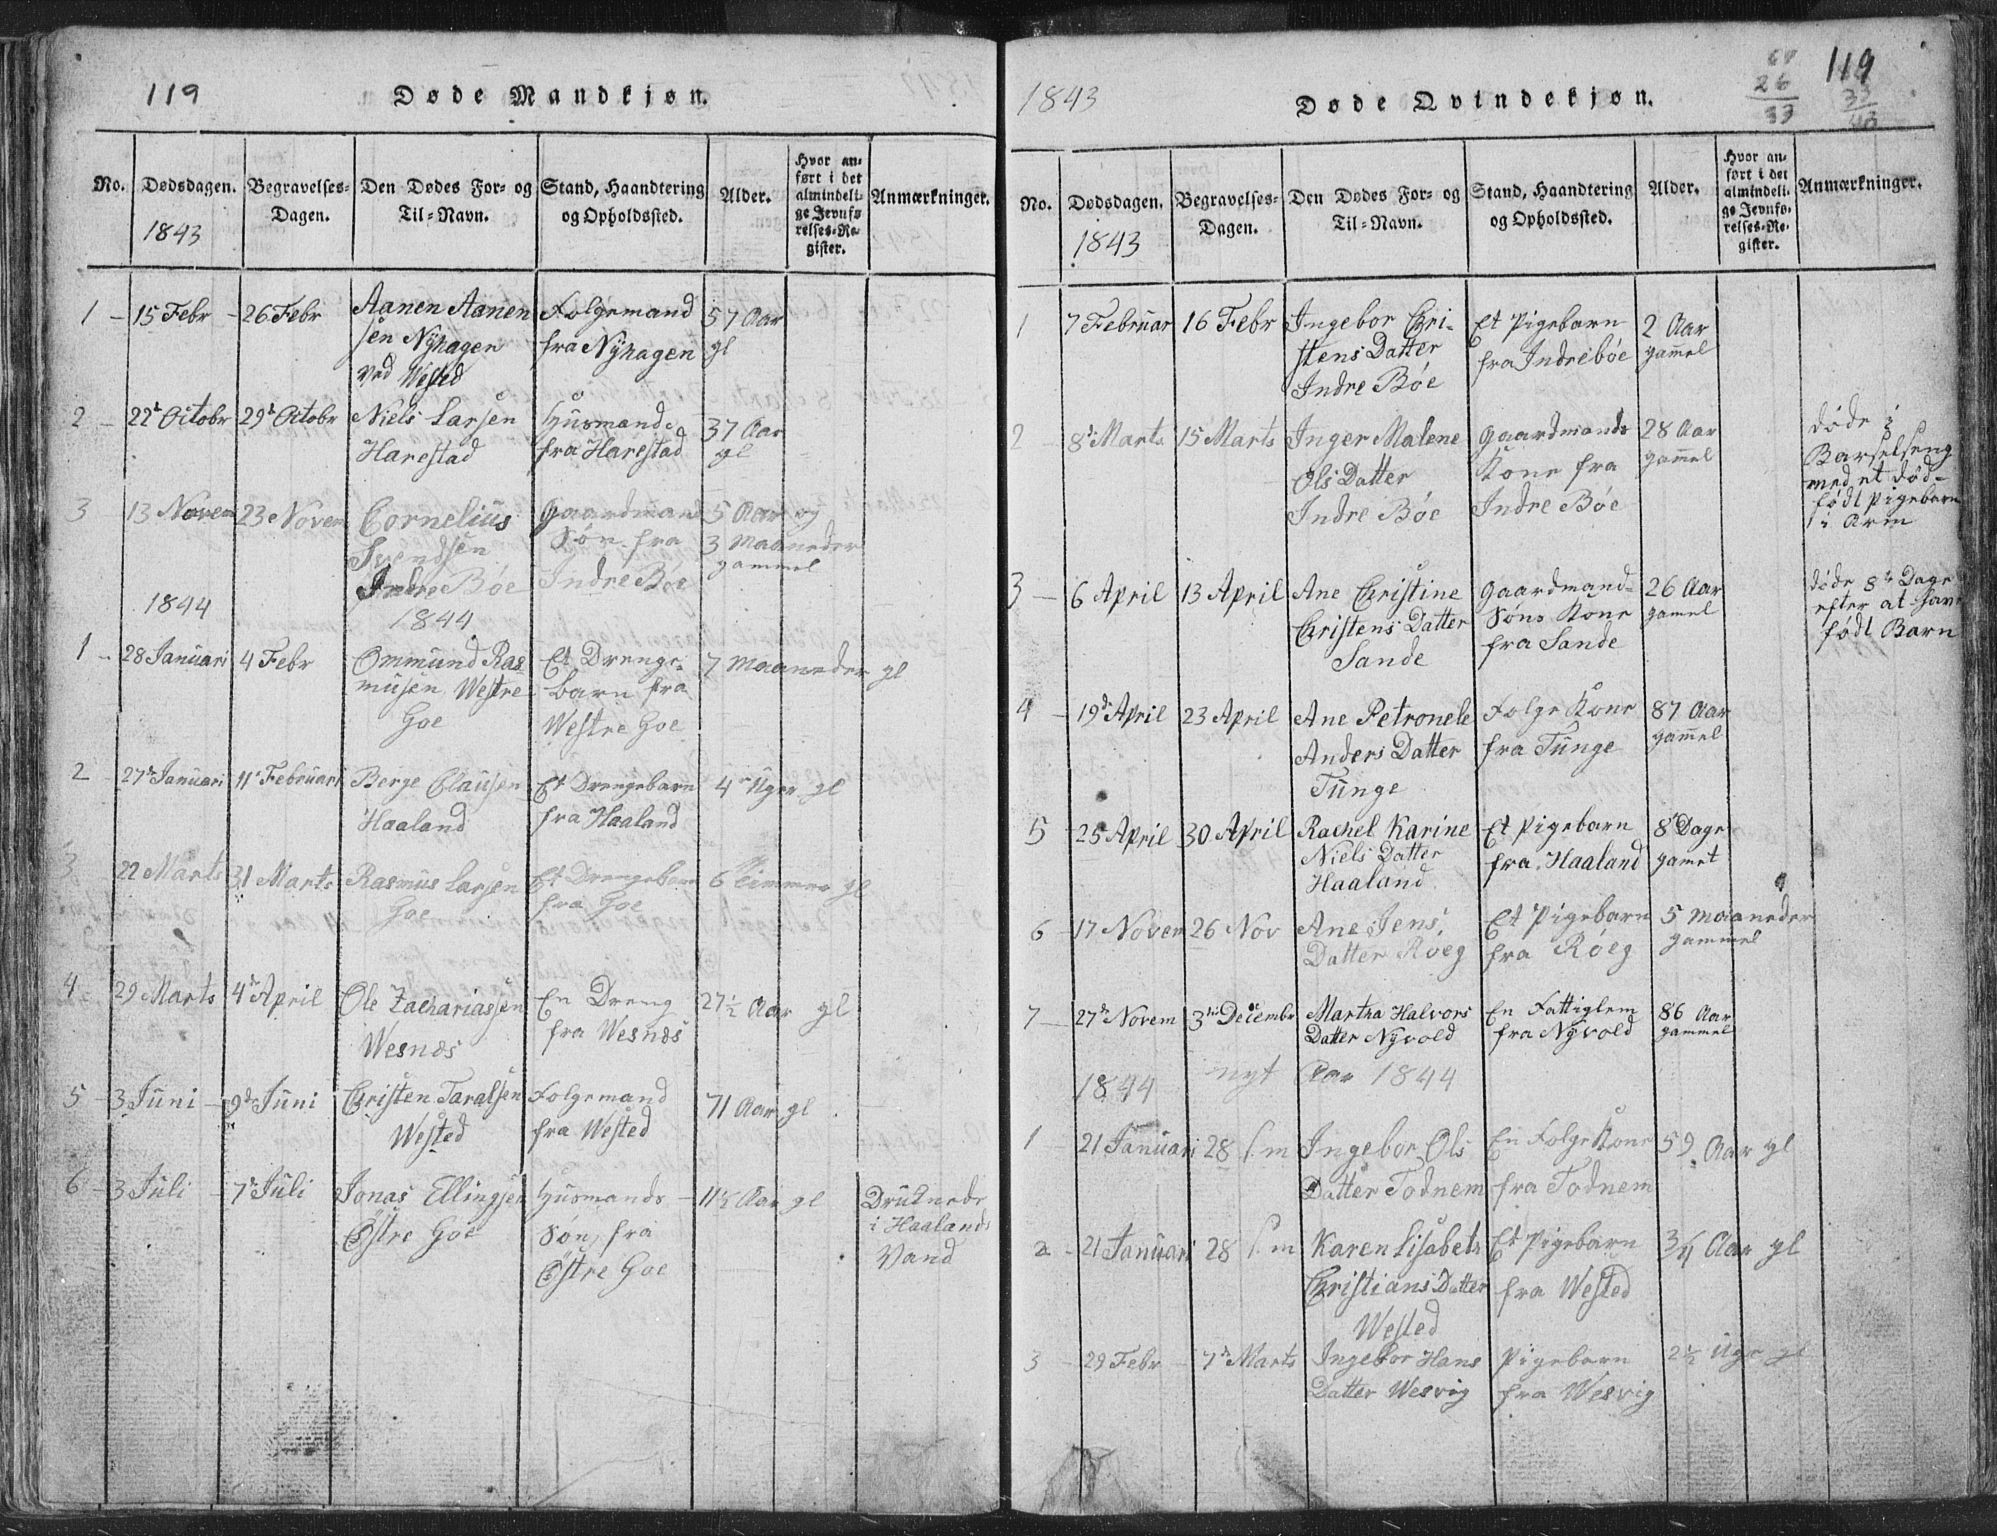 119
Døde Mandkjøn.
No.
Dødsdagen.
1843
Begravelses-
Dagen.
Den Dødes For- og
Til-Navn.
Stand, Haandtering
og Opholdssted.
Alder.
Hvor an-
ført i det
almindeli-
ge Jevnfø
relses-Re-
gister.
Anmærkninger.
1 - 15 Febr - 26 Febr Aanen Aanen Folgemand 57 Aar
sen Nÿhagen fra Nÿhagen gl
ved Wested
2 - 22de Octobr 29de Octobr Niels Larsen Husmand 37 Aar
Harestad fra Harestad gl
3 13 Novem 23 Novem Cornelius Gaardmand 5 Aar og
Svendsen Søn fra 3 Maaneder
Indre Bøe Indre Bøe gammel
1844 1844
1 - 28 Januari 4 Febr Ommund Ras Et Drenge- 7 Maaneder gl
musen Westre barn fra
Goe Westre Goe
2 - 27de Januari 11te Februari Berge Clausen Et Drengebarn 4re Uger gl
Haaland fra Haaland
3 22 Marts 31 Marts Rasmus Larsen Et Drengebarn 6 Timmer gl
Goe fra Goe
4 - 29 Marts 4de April Ole Zachariassen En Dreng 27½ Aar gl
Wesnæs fra Wesnæs
5 - 3 Juni - 9de Juni Christen Taralsen Folgemand 71 Aar gl
Wested fra Wested
6 - 3 Juli - 7de Juli Jonas Ellingsen Husmands - 11½ Aar gl Druknede
Østre Goe Søn fra i Haalands
Østre Goe Vand
1843
Døde Qvindekjøn.
26
119
No.
Dødsdagen.
1843
Begravelses-
Dagen.
Den Dødes For- og
Til-Navn.
Stand, Haandtering
og Opholdssted.
Alder.
Hvor an-
ført i det
almindeli-
ge Jevnfø-
relses-Re-
gister.
Anmærkninger.
1 7 Februar 16 Febr Ingebor Chri- Et Pigebarn 2 Aar
stens Datter fra Indrebøe gammel
Indre Bøe
2 - 8de Marts 15 Marts Inger Malene Gaardmands 28 Aar døde i
Ols Datter Kone fra gammel Barselseng
Indre Bøe Indre Bøe med et død-
født Pigebarn
i Arm
3 - 6 April 13 April Ane Christine Gaardmand- 26 Aar døde 8te Dage
Christens Datter Søns Kone gammel efter at have
Sande fra Sande født Barn
4 - 19de April 23 April Ane Petronele Folge Kone 87 Aar
Anders Datter fra Tunge gammel
Tunge
5 - 25 April 30 April Rachel Karine Et Pigebarn 8te Dage
Niels Datter fra Haaland
Haaland
6 - 17 Novem 26 Nov Ane Jens Et Pigebarn 5 Maaneder
Datter Røeg fra Røeg gammel
7 - 27de Novem 3die Decembr Martha Halvors En Fattiglem 86 Aar
Datter Nÿvold fra Nÿvold gammel
1844 nyt Aar 1844
1 - 21 Januari 28 s.m Ingebor Ols En Folge Kone 59 Aar gl
Datter Todnem fra Todnem
2 - 21 Januari 28 s.m Karen Lisabeth Et Pigebarn 3/4 Aar gl
Christians Datter fra Wested
Wested
3 - 29 Febr - 7de Marts Ingebor Hans Pigebarn 2½ Uge gl
Datter Wesvig fra Wesvig